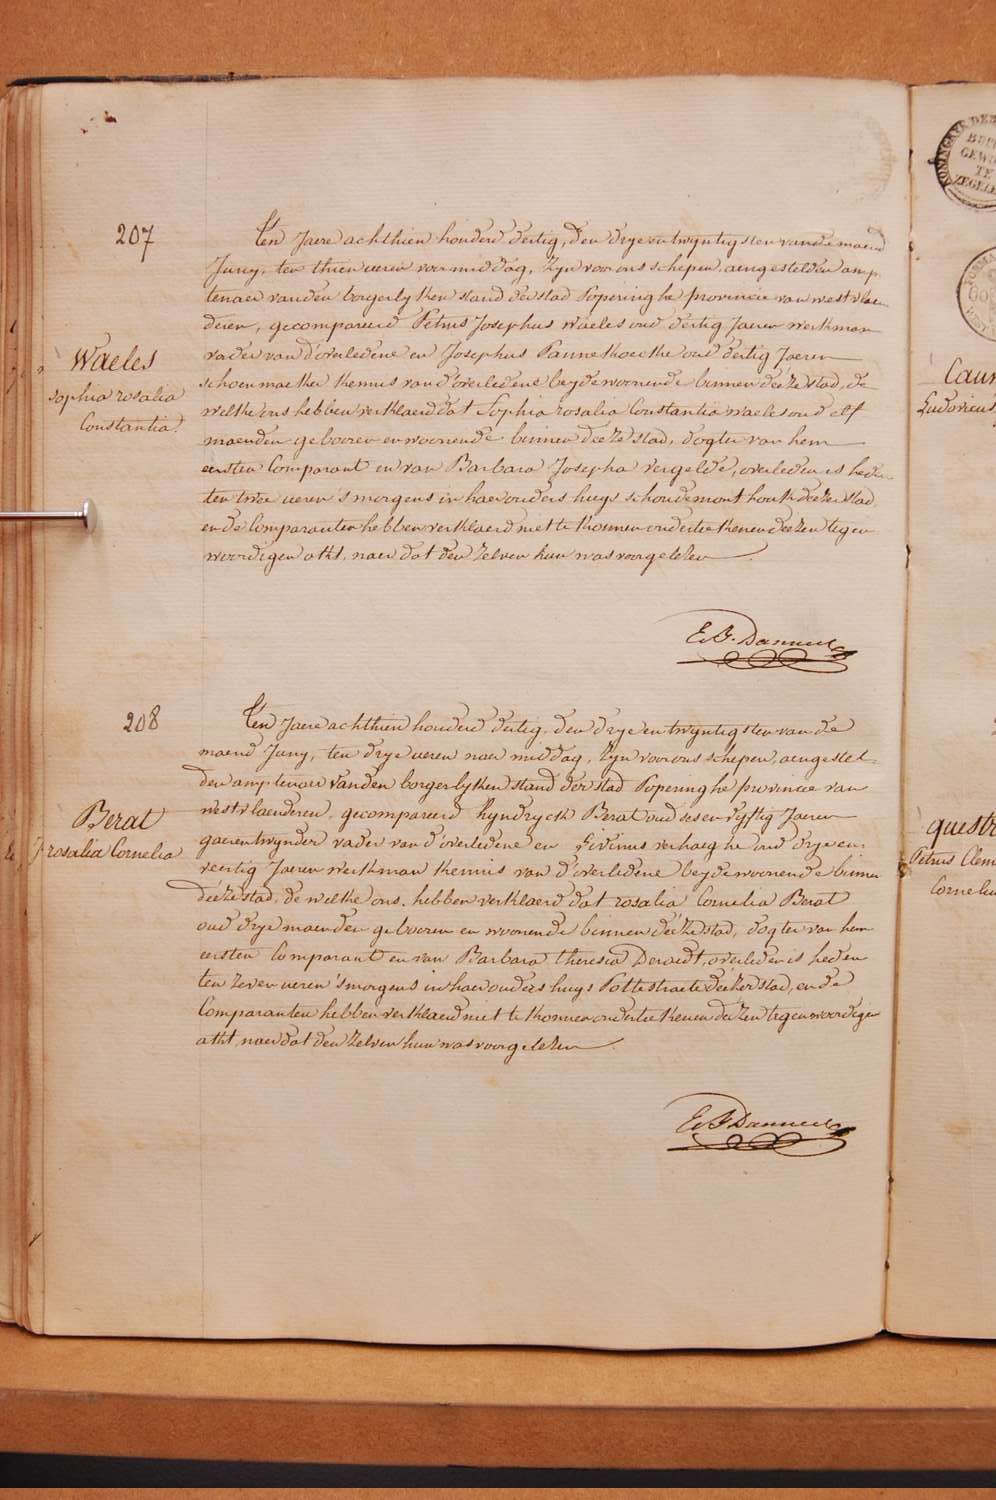 207
Waeles
sophia rosalia
Constantia.
Ten Jaere achthien honderd dertig, den drye en twyntigsten van de maend
Juny, ten thien ueren voormiddag, zyn voor ons schepen, aengestelden amp-
tenaer van den borgerlyken stand der stad Poperinghe provincie van westvlaen
deren, gecompareerd Petrus Josephus Waeles oud dertig Jaeren werkman
vader van d'overledene en Josephus Pannekoecke oud dertig Jaeren
schoenmaeker kennis van d'overledene beyde woonende binnen deeze stad, de
welke ons hebben verklaerd dat Sophia rosalia Constantia waeles oud elf
maenden gebooren en woonende binnen deeze stad, dogter van hem
eersten Comparant en van Barbara Josepha vergelde, overleden is heden
ten twee ueren 's morgens in haer ouders huys schoudemont houk deezer stad
en de Comparanten hebben verklaerd niet te konnen onderteekenen deezen tegen
woordigen akt, naer dat den zelven hun was voorgelezen
208
Berat
rosalia Cornelia
Ten Jaere achthien honderd dertig, den drye en twyntigsten van de
maend Juny, ten drye ueren naer middag, zyn voor ons schepen, aengestel-
den amptenaer van den borgerlyken stand der stad Poperinghe provincie van
westvlaenderen, gecompareerd hyndryck Berat oud ses en vyftig Jaeren
gaerentwynder vader van d'overledene en Livinus verhaeghe oud drye en
veertig Jaeren werkman kennis van d'overledene beyde woonende binnen
deeze stad, de welke ons hebben verklaerd dat rosalia Cornelia Berat
oud drye maenden gebooren en woonende binnen deeze stad, dogter van hem
eersten Comparant en van Barbara theresia Deraedt, overleden is heden
ten zeven ueren 's morgens in haer ouders huys Pottestraete deezer stad, en de
Comparanten hebben verklaerd niet te konnen onderteekenen deezen tegenwoordigen
akt, naer dat den zelven hun was voorgelezen
Ludovicus
questr
Petrus Clem
Corneliu